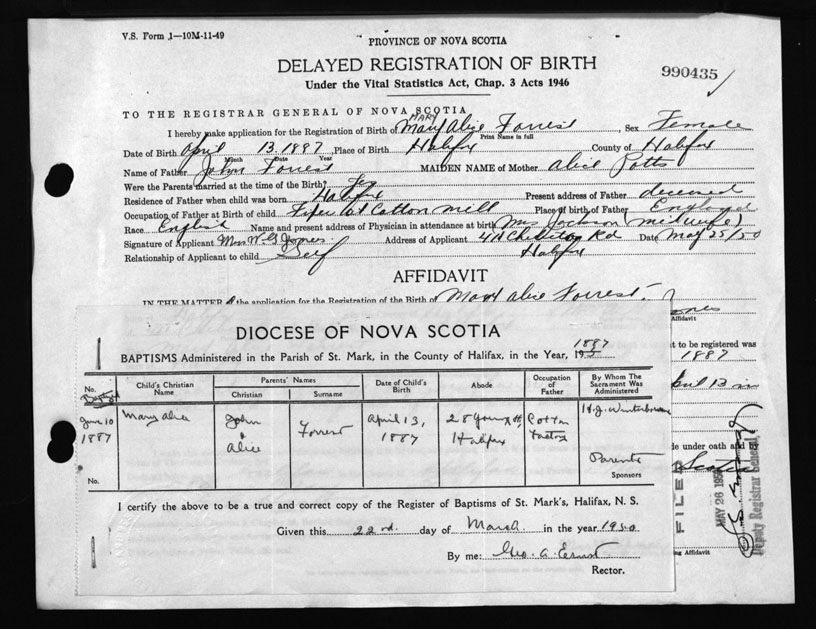 V.S. Form 1—10M-11-49
PROVINCE OF NOVA SCOTIA
DELAYED REGISTRATION OF BIRTH
Under the Vital Statistics Act, Chap. 3 Acts 1946
990435
TO THE REGISTRAR GENERAL OF NOVA SCOTIA
MARY
I hereby make application for the Registration of Birth of Mary Alice Forrest, Sex Female
Print Name in full
Date of Birth April 13. 1887 Place of Birth Halifax County of Halifax
Month Date Year
Name of Father John Forrest MAIDEN NAME of Mother Alice Potts
Were the Parents married at the time of the Birth? Yes
Residence of Father when child was born Halifax Present address of Father deceased
Occupation of Father at Birth of child at Cotton Mill Place of birth of Father England
Race English Name and present address of Physician in attendance at birth Mrs (midwife)
Signature of Applicant Mrs Jones Address of Applicant Rd Date May 25/50
Relationship of Applicant to child Self Halifax
AFFIDAVIT
IN THE MATTER of the application for the Registration of the Birth of Mary Alice Forrest
Affidavit
t to be registered was
1887
April 13
de under oath and by
Scotia
FILED
MAY 26 195
Deputy Registrar General
ing Affidavit
DIOCESE OF NOVA SCOTIA
BAPTISMS Administered in the Parish of St. Mark, in the County of Halifax, in the Year, 1887
No. Child's Christian Name Parents' Names Christian Surname Date of Child's Birth Abode Occupation of Father By Whom The Sacrament Was Administered
Baptized
June 10 1887 Mary Alice John & Alice Forrest April 13, 1887 28 Young St, Halifax Cotton Factory H.J. Winterbourne
Parents
No. Sponsors
I certify the above to be a true and correct copy of the Register of Baptisms of St. Mark's, Halifax, N. S.
Given this 22nd. day of March in the year 1950
By me: Geo. A. Ernst
Rector.